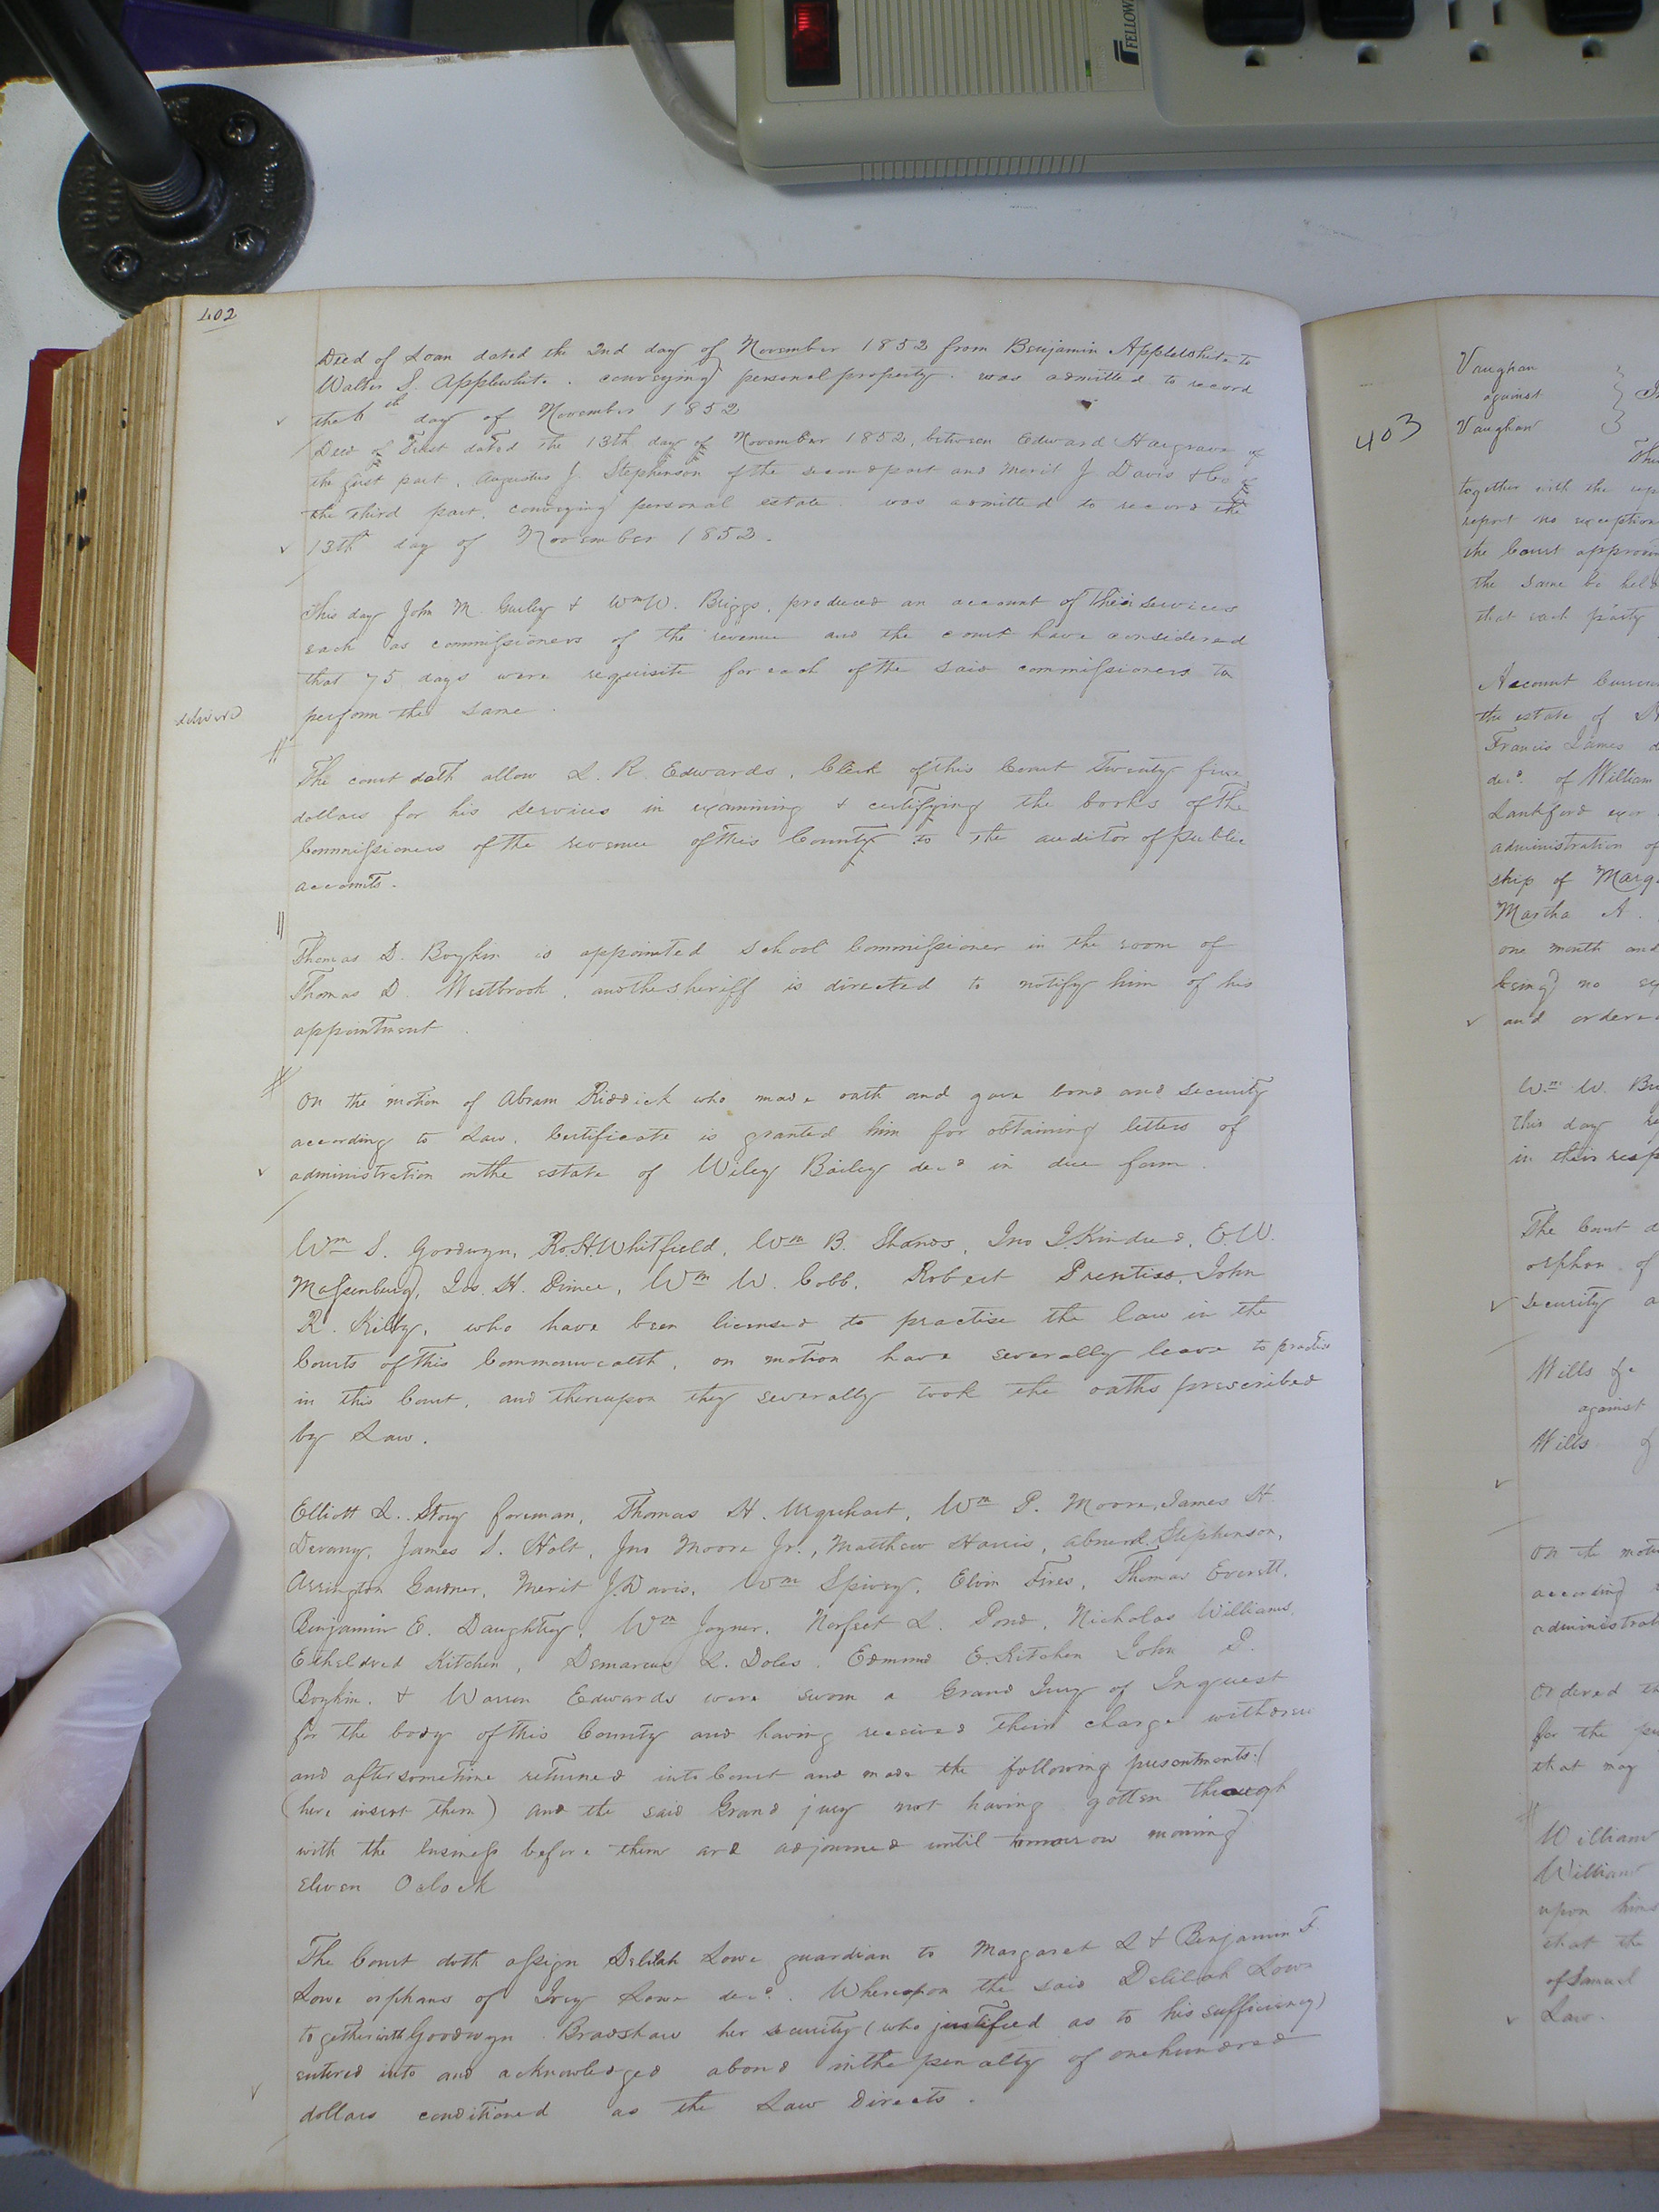 FELLOW
402
Deed of Loan dated the 2nd day of November 1852 from Benjamin Applewhite to
Walter S. Applewhite. conveying personal property. was admitted to record
the 6th day of November 1852
Deed of Trust dated the 13th day of November 1852, between Edward Hargrave of
the first part, Augustus J. Stephenson of the second part and Merit J Davis & Co of
the third part, conveying personal estate. was admitted to record the
13th day of November 1852.
This day John M. Gurley & Wm W. Briggs, produced an account of their services
each as commissioners of the revenue and the court have considered
that 75 days were requisite for each of the said commissioners to
perform the same.
The court doth allow L. R. Edwards, Clerk of this Court Twenty five
dollars for his services in examining & certifying the books of the
Commissioners of the revenue of this County to the auditor of public
accounts.
Thomas D. Boykin is appointed School Commissioner in the room of
Thomas D. Westbrook, and the sheriff is directed to notify him of his
appointment
On the motion of Abram Riddick who made oath and gave bond and security
according to Law. Certificate is granted him for obtaining letters of
administration on the estate of Wiley Bailey decd in due form.
Wm S. Goodwyn, Ro. H. Whitfield, Wm B. Shands, Jno J. Kindred, E. W.
Massenburg, Jos. H. Prince, Wm W. Cobb, Robert Prentiss, John
R. Kilby, who have been licensed to practise the law in the
Courts of this Commonwealth, on motion have severally leave to practise
in this Court, and thereupon they severally took the oaths prescribed
by Law.
Elliott L. Story foreman, Thomas H. Urquhart, Wm P. Moore, James H.
Devany, James S. Holt, Jno Moore Jr., Matthew Harris, Stephenson,
Arrington Garner, Merit J. Davis, Wm Spivey, Elvin Fires, Thomas Everett,
Benjamin E. Daughtrey, Wm Joyner, Norfleet L. Pond, Nicholas Williams,
Etheldred Kitchen, Demarcus L. Doles, Edmund E. Kitchen John D.
Boykin, & Warren Edwards were sworn a Grand Jury of Inquest
for the body of this County and having received their charge withdrew
and after sometime returned into Court and made the following presentments:
(here insert them) and the said Grand jury not having gotten through
with the business before them are adjourned until tomorrow morning
eleven Oclock
The Court doth assign Delilah Lowe guardian to Margaret L & Benjamin F.
Lowe orphans of Ivey Lowe decd. Whereupon the said Delilah Lowe
together with Goodwyn Bradshaw her security (who justified as to his sufficiency)
entered into and acknowledged a bond in the penalty of one hundred
dollars conditioned as the Law Directs.
403
Vaughan
against
Vaughan
together with the
report no exception
the Court
the same be
that each party
Account
the estate of
Francis James
decd. of William
Lankford exor
administration of
ship of
Martha A.
one month and
being no
and
Wm W.
this day
in their
The Court
orphan of
security
Wills
against
Wills
On the
according
Ordered
for the
that may
William
William
upon
that the
of Samuel
Law.